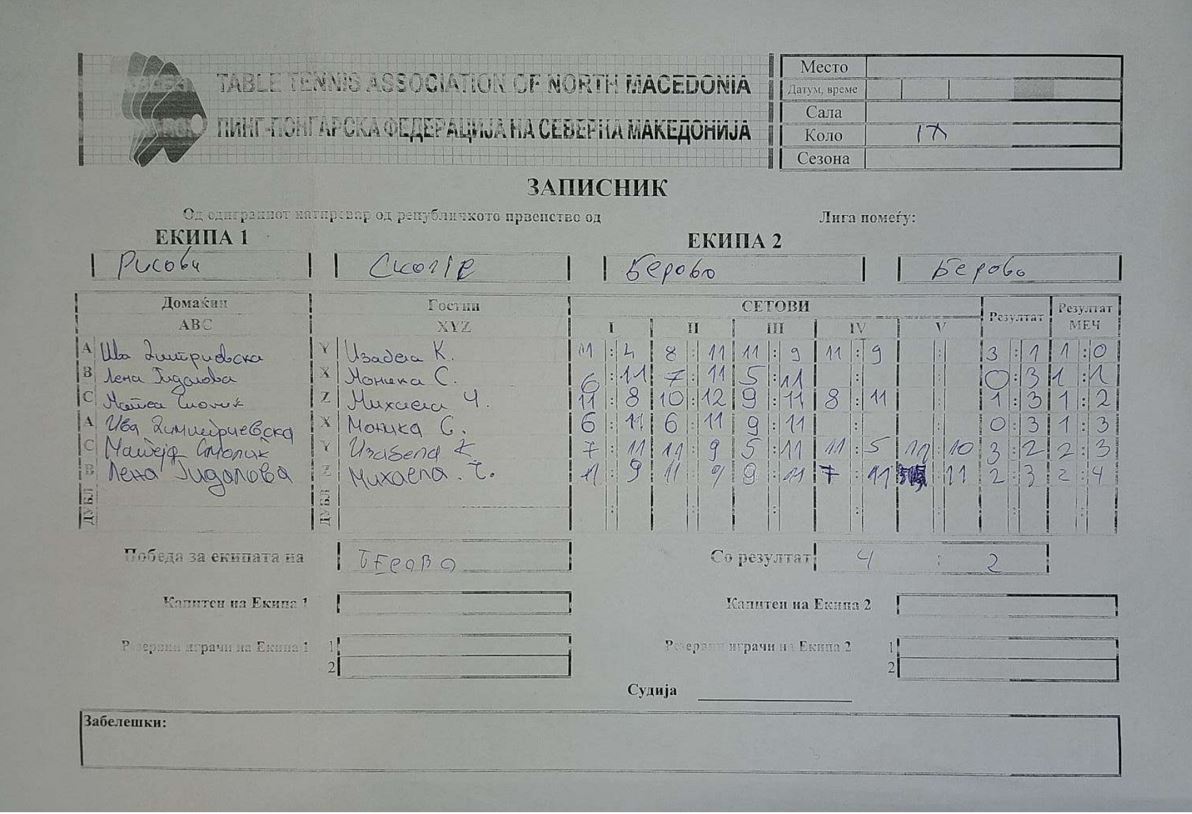 TABLE TENNIS ASSOCIATION OF NORTH MACEDONIA
ПИНГ-ПОНГАРСКА ФЕДЕРАЦИЈА НА СЕВЕРНА МАКЕДОНИЈА
Место
Датум, време
Сала
Коло IX
Сезона
ЗАПИСНИК
Од одиграниот натпревар од републичкото првенство од Лига помеѓу:
ЕКИПА 1 ЕКИПА 2
Рисови Скопје Берово Берово
Домаќин Гостин СЕТОВИ Резултат Резултат МЕЧ
ABC XYZ I II III IV V
A Ива Димитриевска Y Изабела К. 11 : 4 8 : 11 11 : 9 11 : 9 3 : 1 1 : 0
B Лена Гидалова X Моника С. 6 : 11 7 : 11 5 : 11 0 : 3 1 : 1
C Z Михаела Ч. 11 : 8 10 : 12 9 : 11 8 : 11 1 : 3 1 : 2
A Ива Димитриевска X Моника С. 6 : 11 6 : 11 9 : 11 0 : 3 1 : 3
C Матеја Столик Y Изабела К. 7 : 11 11 : 9 5 : 11 11 : 5 : 10 3 : 2 2 : 3
B Лена Гидалова Z Михаела. Ч. 11 : 9 11 : 9 9 : 11 7 : 11 : 11 2 : 3 2 : 4
ДУБЛ ДУБЛ
Победа за екипата на Берово Со резултат 4 : 2
Капитен на Екипа 1 Капитен на Екипа 2
Резервни играчи на Екипа 1 1 Резервни играчи на Екипа 2 1
2 2
Судија
Забелешки: